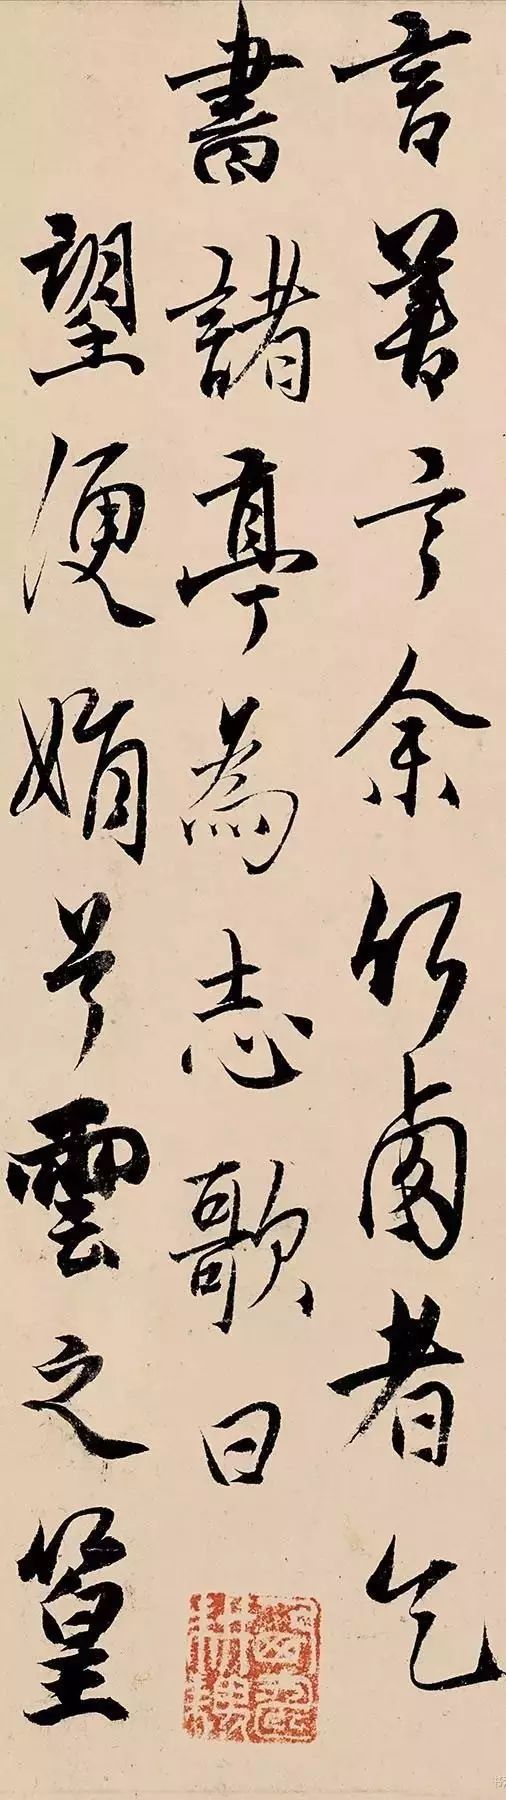 言善言余者乞
書諸亭為志歌曰
望便娟兮雲之篁